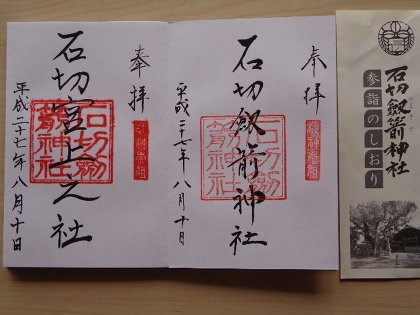 奉拝
石切劔箭神社
平成二十七年八月十日
奉拝
石切宮上之社
平成二十七年八月十日
石切劔箭神社
石切劔箭神社
石切劔箭神社
参詣のしおり